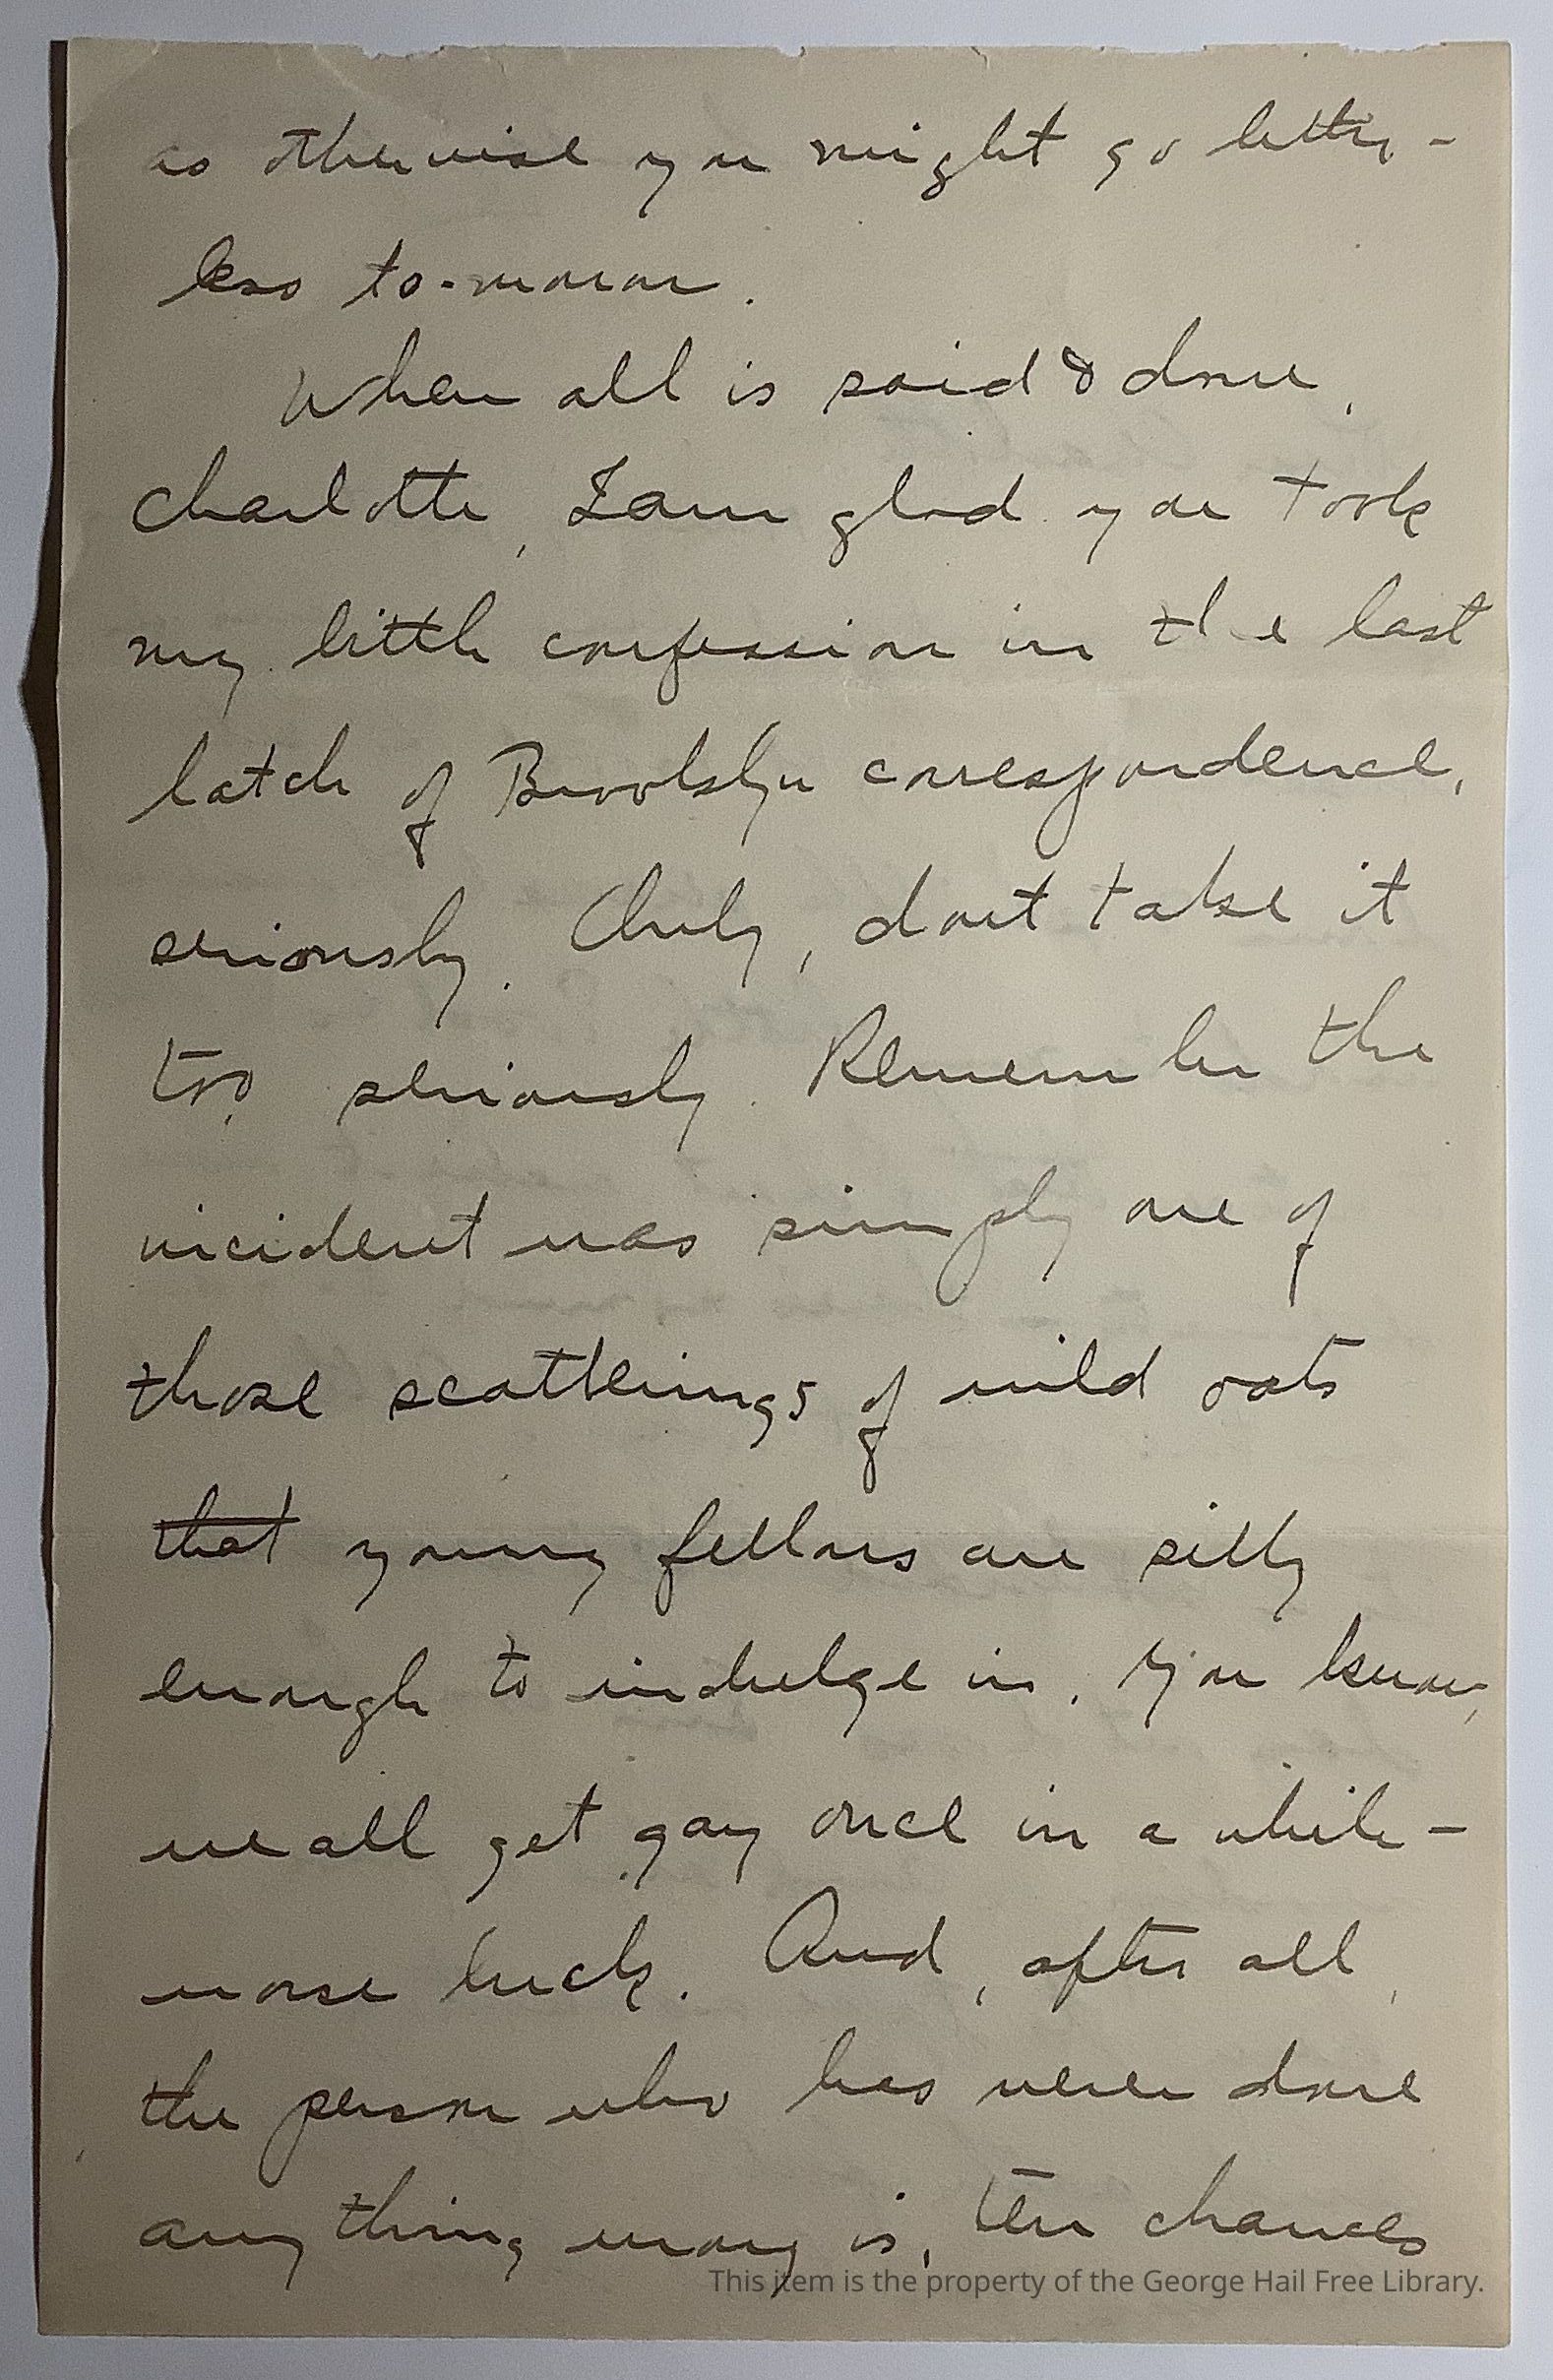 as otherwise you might go letter-
less to-morrow.
When all is said & done,
Charlotte, I am glad you took
my little confession in the last
batch of Brooklyn correspondence,
seriously. Only, dont take it
too seriously. Remember the
incident was simply one of
those scatterings of wild oats
that young fellows are silly
enough to indulge in. You know,
we all get gay once in a while –
worse luck. And, after all,
the person who has never done
any thing wrong is, ten chances
This item is the property of the George Hail Free Library.